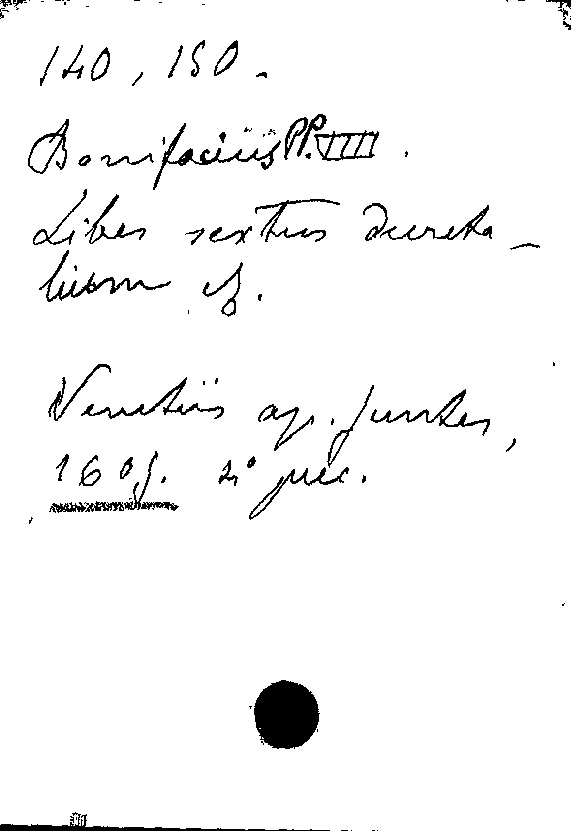 140, 150.
Bonifacius PP. VIII.
Liber sextus decreta-
lium
Venetiis ap. Juntas,
1605. 4°